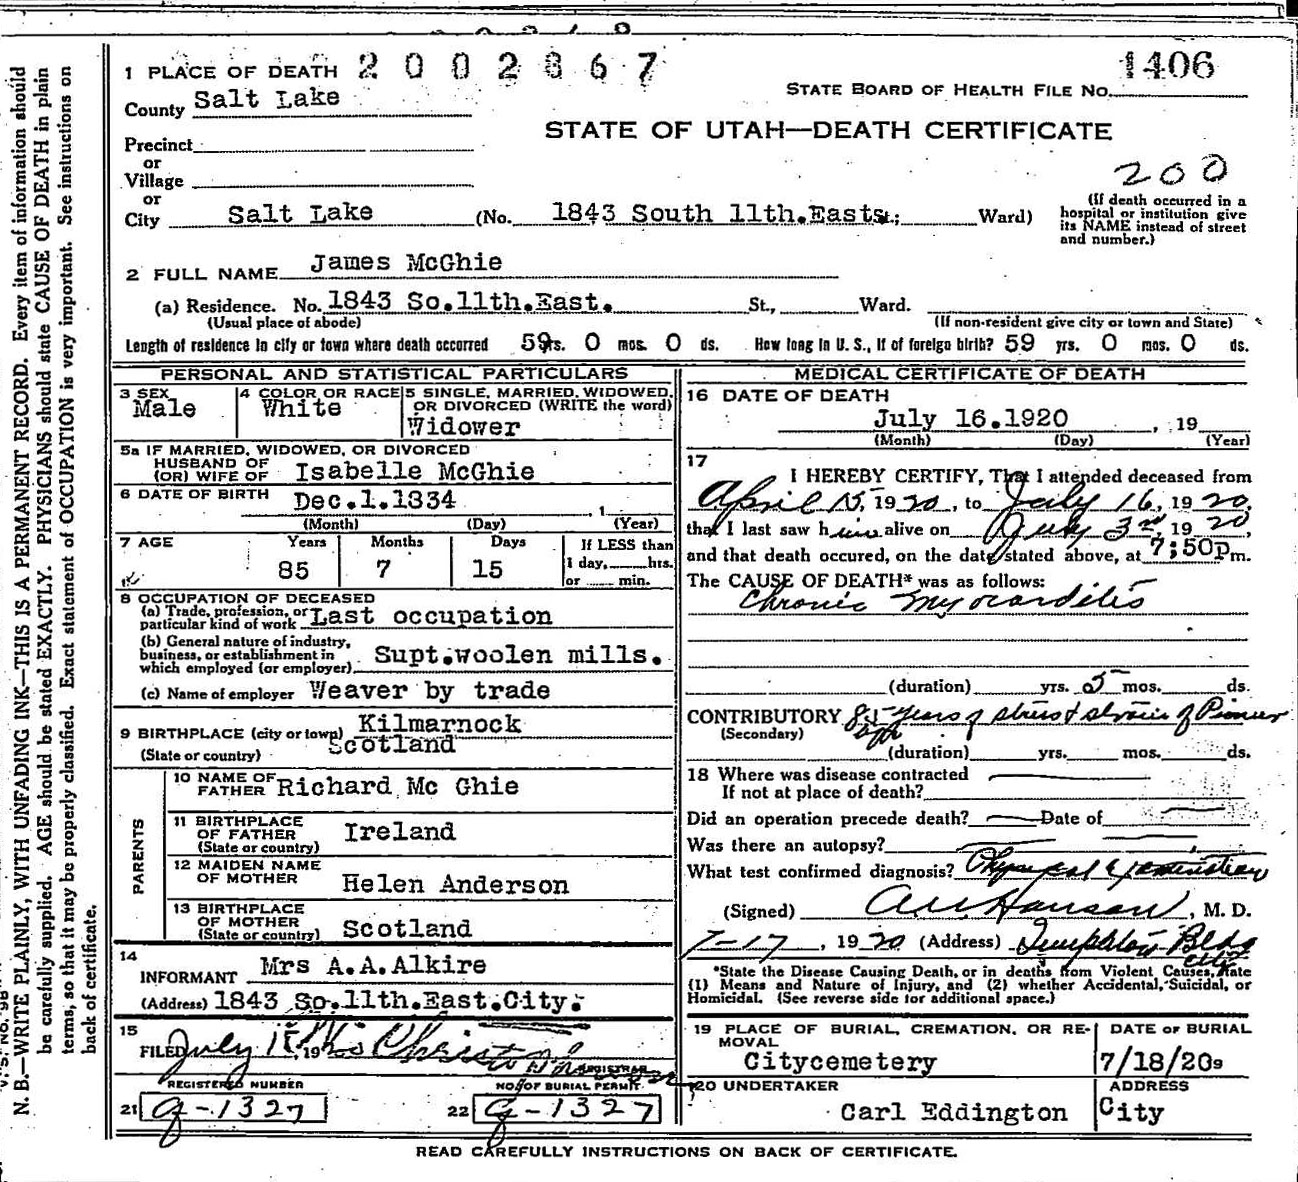 2002867
1406
1 PLACE OF DEATH
STATE BOARD OF HEALTH FILE No.
County Salt Lake
STATE OF UTAH—DEATH CERTIFICATE
Precinct
or
Village
200
or
City Salt Lake (No. 1843 South 11th.East St.; Ward)
(If death occurred in a hospital or institution give its NAME instead of street and number.)
2 FULL NAME James McGhie
(a) Residence. No. 1843 So.11th.East. St., Ward.
(Usual place of abode) (If non-resident give city or town and State)
Length of residence in city or town where death occurred 59 yrs. 0 mos. 0 ds. How long in U. S., if of foreign birth? 59 yrs. 0 mos. 0 ds.
PERSONAL AND STATISTICAL PARTICULARS
3 SEX Male
4 COLOR OR RACE White
5 SINGLE, MARRIED, WIDOWED, OR DIVORCED (WRITE the word) Widower
5a IF MARRIED, WIDOWED, OR DIVORCED
HUSBAND OF
(OR) WIFE OF Isabelle McGhie
6 DATE OF BIRTH Dec.1.1834 , 1
(Month) (Day) (Year)
7 AGE Years Months Days If LESS than
85 7 15 1 day, hrs.
or min.
8 OCCUPATION OF DECEASED
(a) Trade, profession, or
particular kind of work Last occupation
(b) General nature of industry,
business, or establishment in
which employed (or employer) Supt.woolen mills.
(c) Name of employer Weaver by trade
9 BIRTHPLACE (city or town) Kilmarnock
(State or country) Scotland
PARENTS
10 NAME OF
FATHER Richard Mc Ghie
11 BIRTHPLACE
OF FATHER
(State or country) Ireland
12 MAIDEN NAME
OF MOTHER Helen Anderson
13 BIRTHPLACE
OF MOTHER
(State or country) Scotland
14
INFORMANT Mrs A.A.Alkire
(Address) 1843 So.11th.East.City.
15
FILED July 19
REGISTRAR
REGISTERED NUMBER NO. OF BURIAL PERMIT
21 G-1327 22 G-1327
MEDICAL CERTIFICATE OF DEATH
16 DATE OF DEATH
July 16.1920 , 19
(Month) (Day) (Year)
17
I HEREBY CERTIFY, That I attended deceased from
April 15, 1920, to July 16, 1920,
that I last saw him alive on July 3rd, 1920,
and that death occured, on the date stated above, at 7:50p m.
The CAUSE OF DEATH* was as follows:
Chronic Myocarditis
(duration) yrs. 5 mos. ds.
CONTRIBUTORY 85 years of stress & strain of Pioneer
(Secondary)
(duration) yrs. mos. ds.
18 Where was disease contracted
If not at place of death?
Did an operation precede death? Date of
Was there an autopsy?
What test confirmed diagnosis? Physical Examination
(Signed) Hanson, M. D.
7-17, 1920 (Address) Templeton Bldg
City
*State the Disease Causing Death, or in deaths from Violent Causes, state
(1) Means and Nature of Injury, and (2) whether Accidental, Suicidal, or
Homicidal. (See reverse side for additional space.)
19 PLACE OF BURIAL, CREMATION, OR RE-
MOVAL
Citycemetery
DATE OF BURIAL
7/18/20 9
20 UNDERTAKER
Carl Eddington
ADDRESS
City
READ CAREFULLY INSTRUCTIONS ON BACK OF CERTIFICATE.
N. B.—WRITE PLAINLY, WITH UNFADING INK—THIS IS A PERMANENT RECORD. Every item of information should
be carefully supplied. AGE should be stated EXACTLY. PHYSICIANS should state CAUSE OF DEATH in plain
terms, so that it may be properly classified. Exact statement of OCCUPATION is very important. See instructions on
back of certificate.